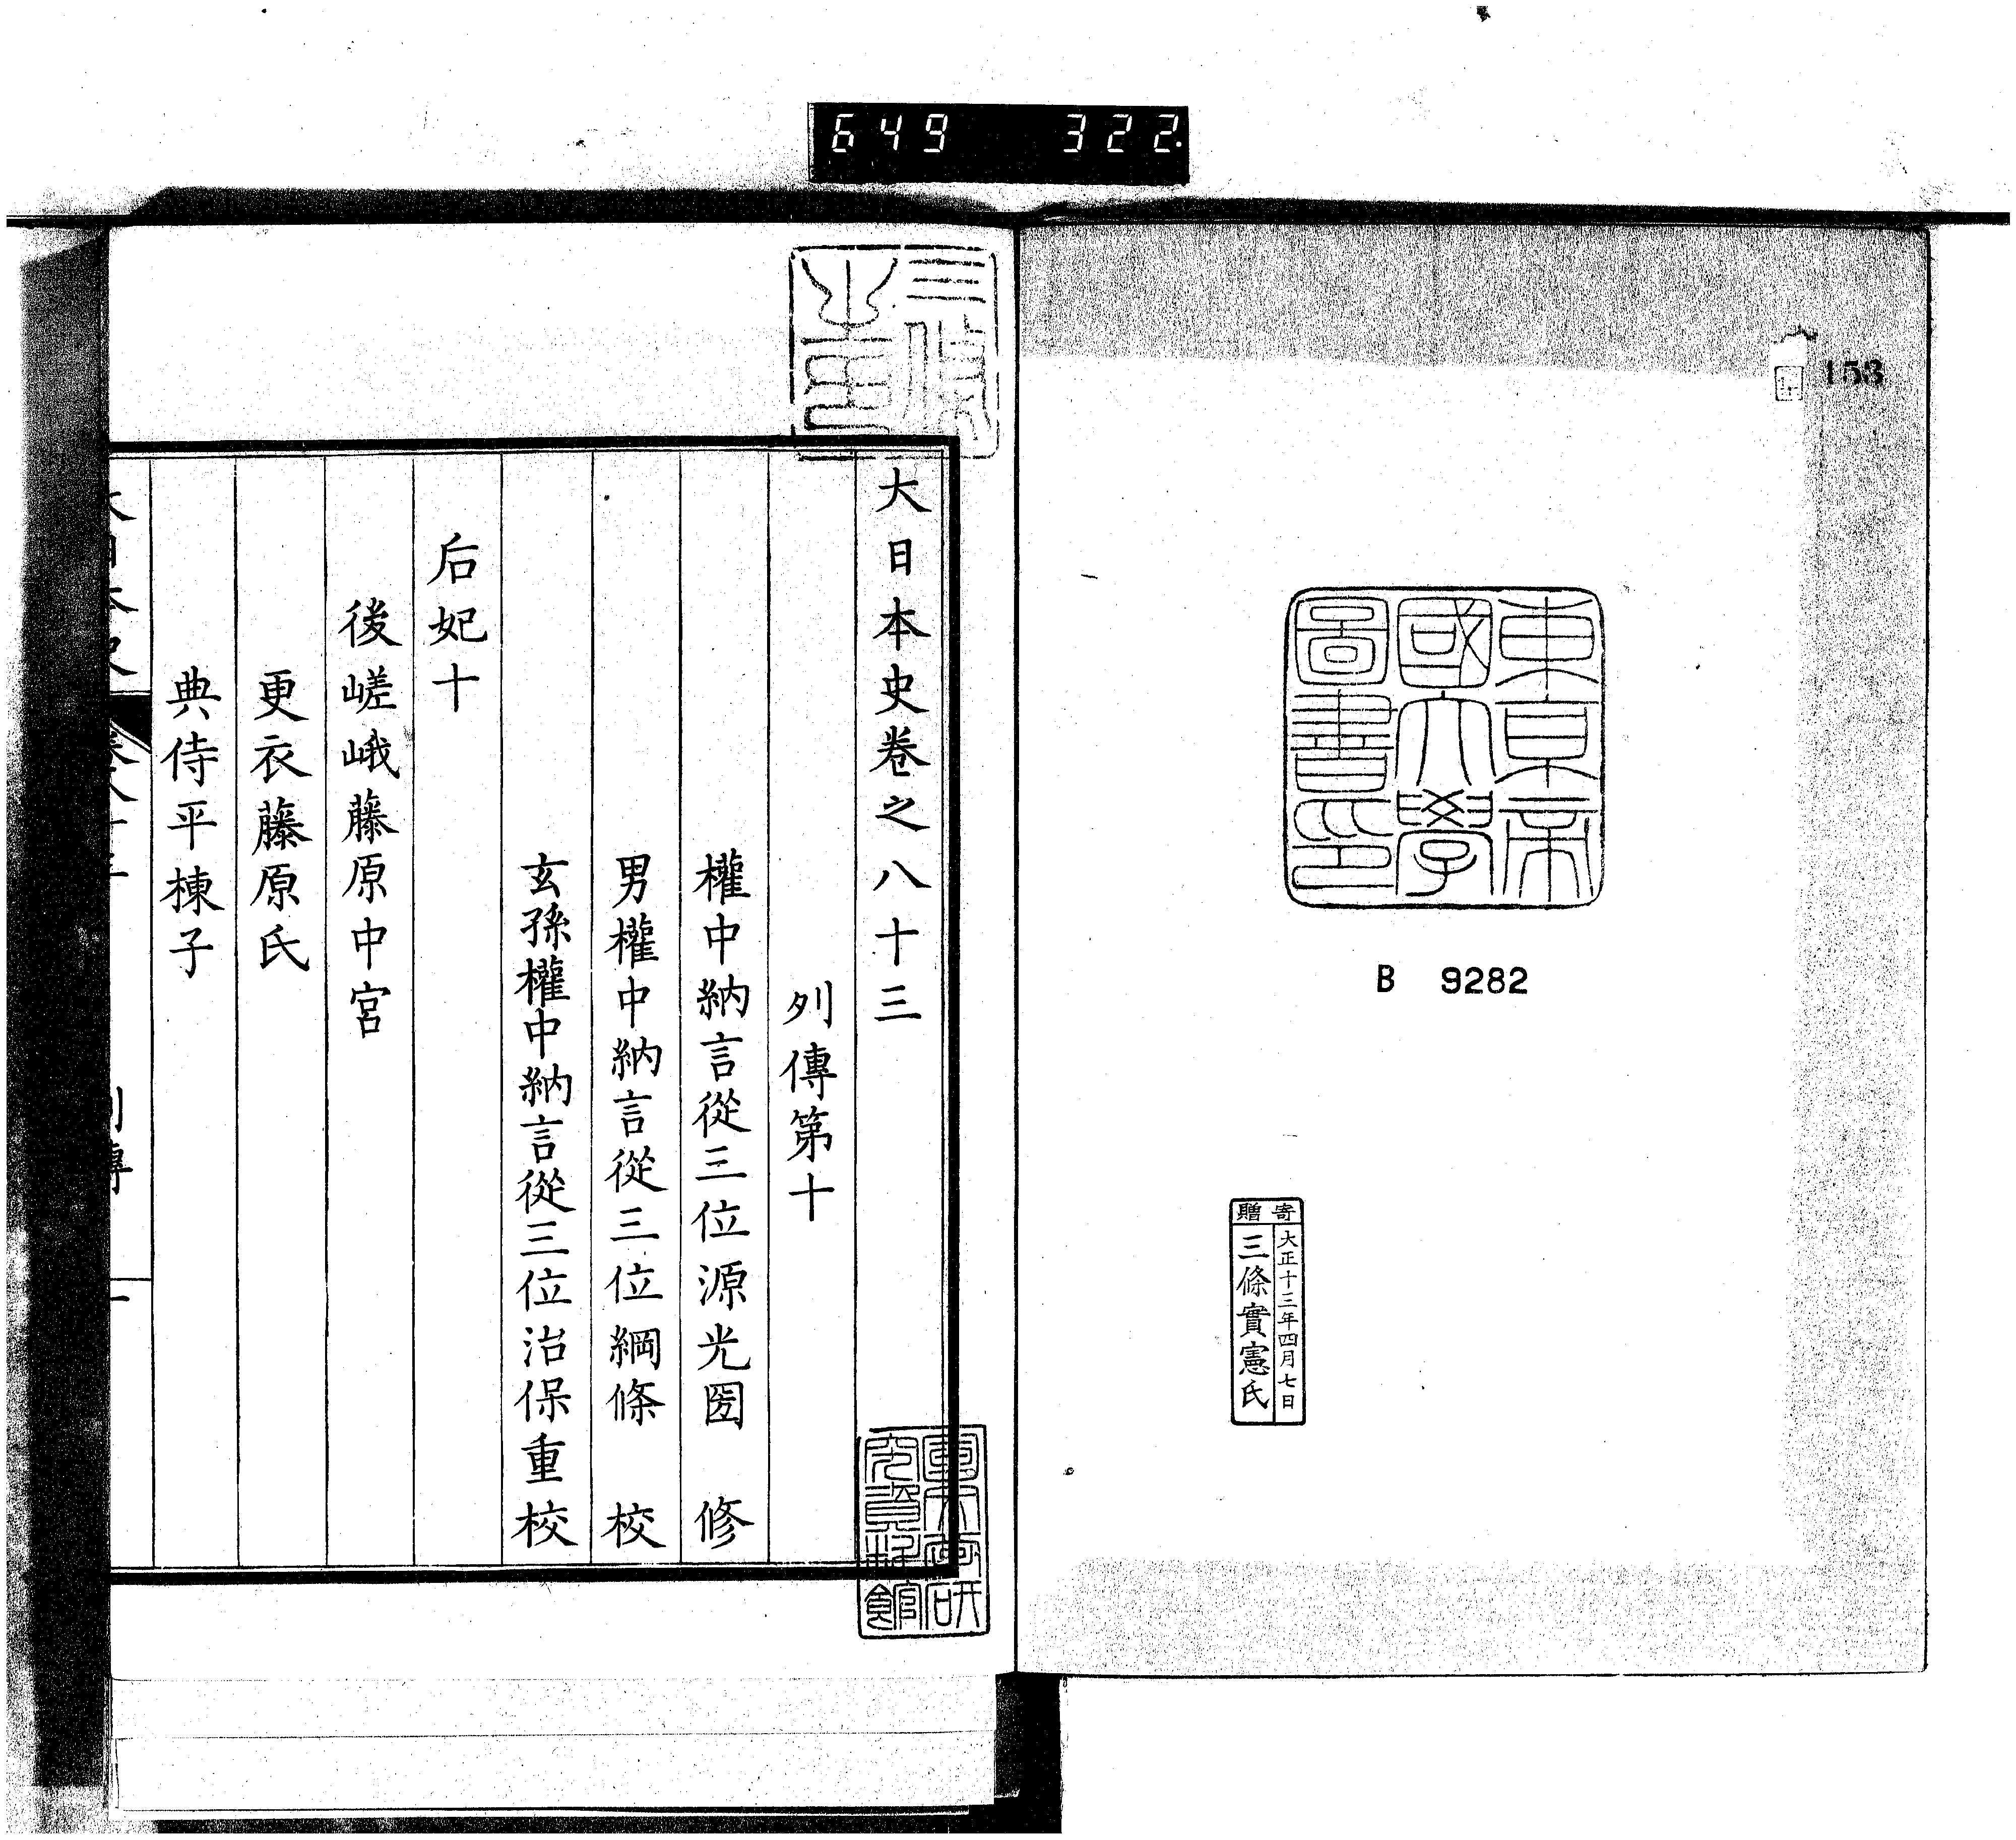 649 322
153
東京帝
國大學
圖書印
B 9282
寄贈
大正十三年四月七日
三條實憲氏
大日本史卷之八十三
列傳第十
權中納言從三位源光圀 修
男權中納言從三位綱條 校
玄孫權中納言從三位治保重校
后妃十
後嵯峨藤原中宮
更衣藤原氏
典侍平棟子
列傳
一